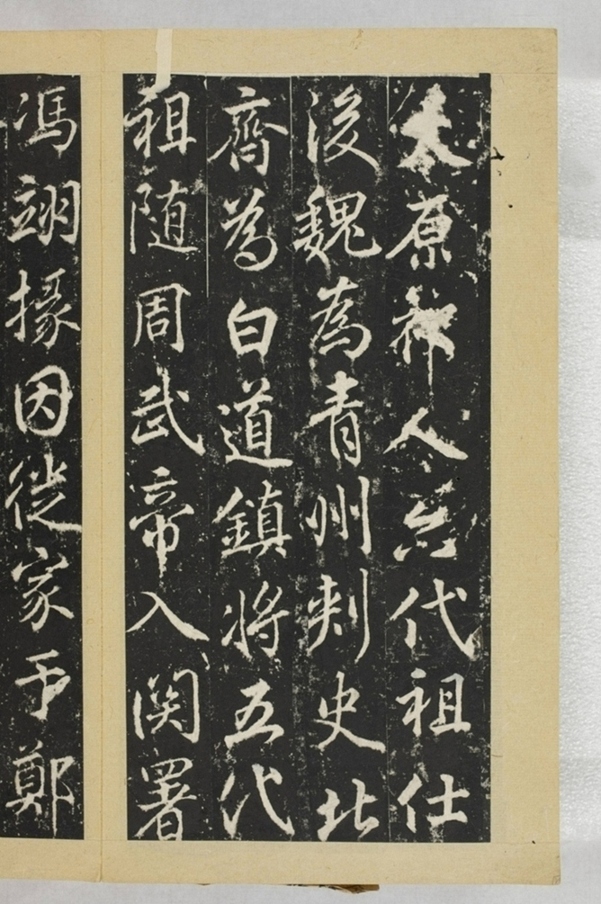 太原祁人六代祖仕
後魏為青州刾史北
齊為白道鎮將五代
祖随周武帝入関署
馮翊掾因徙家于鄭